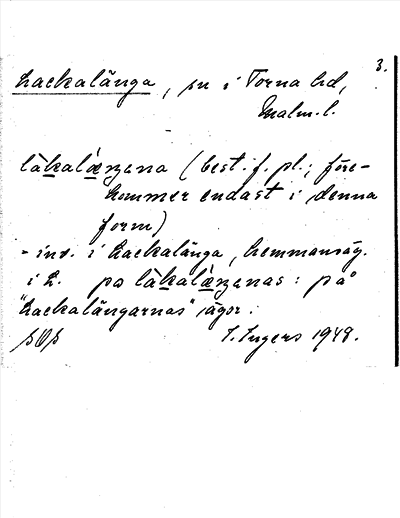 3.
Lackalänga, sn i Torna hd,
Malm. l.
làkalǽŋana (best. f. pl.; före-
kommer endast i denna
form)
= inv. i Lackalänga, hemmansäg.
i L. pɑ làkalǽŋanas: på
"Lackalängarnas" ägor.
I. Ingers 1948.